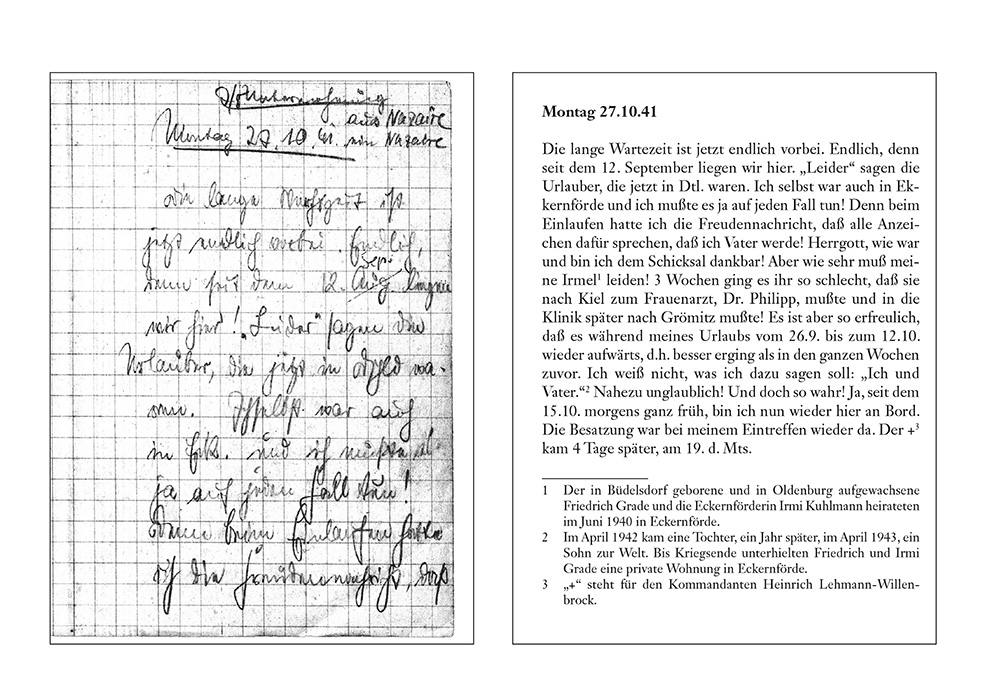 Unternehmung
aus Nazaire
Montag 27.10.41. von Nazaire
Die lange Wartezeit ist
jetzt endlich vorbei. Endlich,
Sept.
denn seit dem 12. Aug. liegen
wir hier! „Leider“ sagen die
Urlauber, die jetzt in Dtschld wa-
ren. Ich selbst war auch
in Eck. und ich mußte es
ja auf jeden Fall tun!
Denn beim Einlaufen hatte
ich die Freudennachricht, daß
Montag 27.10.41
Die lange Wartezeit ist jetzt endlich vorbei. Endlich, denn
seit dem 12. September liegen wir hier. „Leider“ sagen die
Urlauber, die jetzt in Dtl. waren. Ich selbst war auch in Ek-
kernförde und ich mußte es ja auf jeden Fall tun! Denn beim
Einlaufen hatte ich die Freudennachricht, daß alle Anzei-
chen dafür sprechen, daß ich Vater werde! Herrgott, wie war
und bin ich dem Schicksal dankbar! Aber wie sehr muß mei-
ne Irmel¹ leiden! 3 Wochen ging es ihr so schlecht, daß sie
nach Kiel zum Frauenarzt, Dr. Philipp, mußte und in die
Klinik später nach Grömitz mußte! Es ist aber so erfreulich,
daß es während meines Urlaubs vom 26.9. bis zum 12.10.
wieder aufwärts, d.h. besser erging als in den ganzen Wochen
zuvor. Ich weiß nicht, was ich dazu sagen soll: „Ich und
Vater.“² Nahezu unglaublich! Und doch so wahr! Ja, seit dem
15.10. morgens ganz früh, bin ich nun wieder hier an Bord.
Die Besatzung war bei meinem Eintreffen wieder da. Der +³
kam 4 Tage später, am 19. d. Mts.
1 Der in Büdelsdorf geborene und in Oldenburg aufgewachsene
Friedrich Grade und die Eckernförderin Irmi Kuhlmann heirateten
im Juni 1940 in Eckernförde.
2 Im April 1942 kam eine Tochter, ein Jahr später, im April 1943, ein
Sohn zur Welt. Bis Kriegsende unterhielten Friedrich und Irmi
Grade eine private Wohnung in Eckernförde.
3 „+“ steht für den Kommandanten Heinrich Lehmann-Willen-
brock.